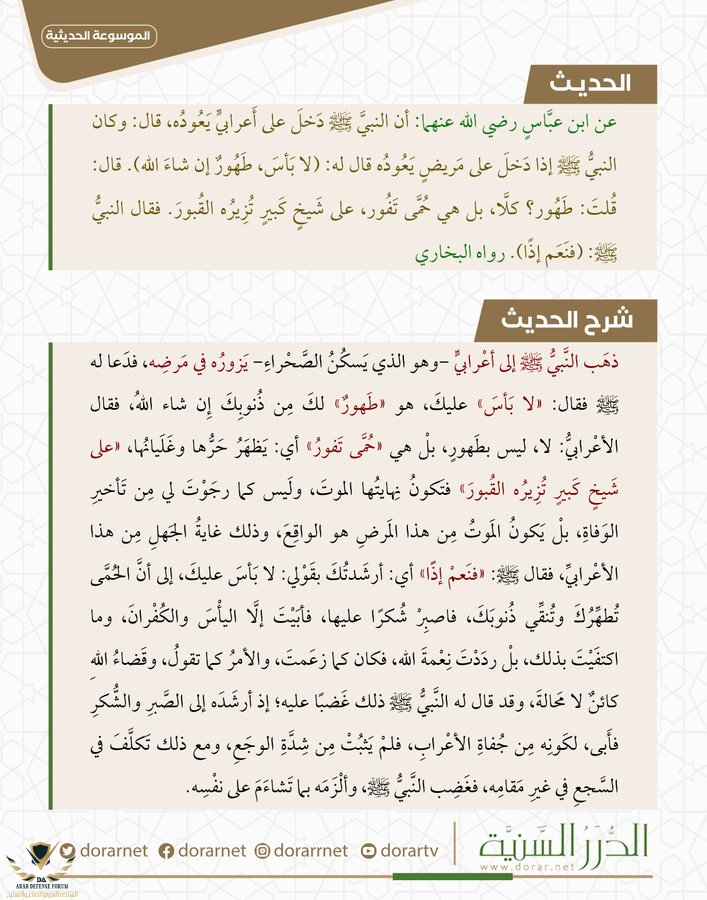 الموسوعة الحديثية
الحديث
عن ابن عبَّاسٍ رضي الله عنهما: أن النبيَّ ﷺ دَخلَ على أَعرابيٍّ يَعُودُه، قال: وكان
النبيُّ ﷺ إذا دَخلَ على مَريضٍ يَعُودُه قال له: (لا بَأسَ، طَهُورٌ إن شاءَ الله). قال:
قُلتَ: طَهُور؟ كلَّا، بل هي حُمَّى تَفُور، على شَيخٍ كَبيرٍ تُزِيرُه القُبورَ. فقال النبيُّ
ﷺ: (فنَعَم إذًا). رواه البخاري
شرح الحديث
ذهَب النَّبيُّ ﷺ إلى أعْرابيٍّ -وهو الذي يَسكُنُ الصَّحْراءِ- يَزورُه في مَرضِه، فدَعا له
ﷺ فقال: «لا بَأسَ» عليكَ، هو «طَهورٌ» لكَ مِن ذُنوبِكَ إن شاء اللهُ، فقال
الأعْرابيُّ: لا، ليس بطَهورٍ، بلْ هي «حُمَّى تَفورُ» أي: يَظهَرُ حَرُّها وغَلَيانُها، «على
شَيخٍ كَبيرٍ تُزِيرُه القُبورَ» فتَكونُ نِهايتُها الموتَ، ولَيس كما رجَوْتَ لي مِن تَأخيرِ
الوَفاةِ، بلْ يَكونُ المَوتُ مِن هذا المَرضِ هو الواقِعَ، وذلك غايةُ الجَهلِ مِن هذا
الأعْرابيِّ، فقال ﷺ: «فنَعمْ إذًا» أي: أرشَدتُكَ بقَوْلي: لا بَأسَ عليكَ، إلى أنَّ الحُمَّى
تُطهِّرُكَ وتُنقِّي ذُنوبَكَ، فاصبِرْ شُكرًا عليها، فأبَيْتَ إلَّا اليأْسَ والكُفْرانَ، وما
اكتفَيْتَ بذلك، بلْ ردَدْتَ نِعْمةَ الله، فكان كما زعَمتَ، والأمرُ كما تقولُ، وقَضاءُ اللهِ
كائنٌ لا مَحَالةَ، وقد قال له النَّبيُّ ﷺ ذلك غَضبًا عليه؛ إذ أرشَدَه إلى الصَّبرِ والشُّكرِ
فأَبى، لكَونِه مِن جُفاةِ الأعْرابِ، فلمْ يَثبُتْ مِن شِدَّةِ الوجَعِ، ومع ذلك تَكلَّفَ في
السَّجعِ في غيرِ مَقامِه، فغَضِب النَّبيُّ ﷺ، وألْزَمَه بما تَشاءَمَ على نفْسِه.
الدُّرَرُ السَّنِيَّة
www.dorar.net
dorartv
dorarrnet
dorarnet
dorarnet
DA
ARAB DEFENSE FORUM
المنتدى العربي للدفاع والتسليح